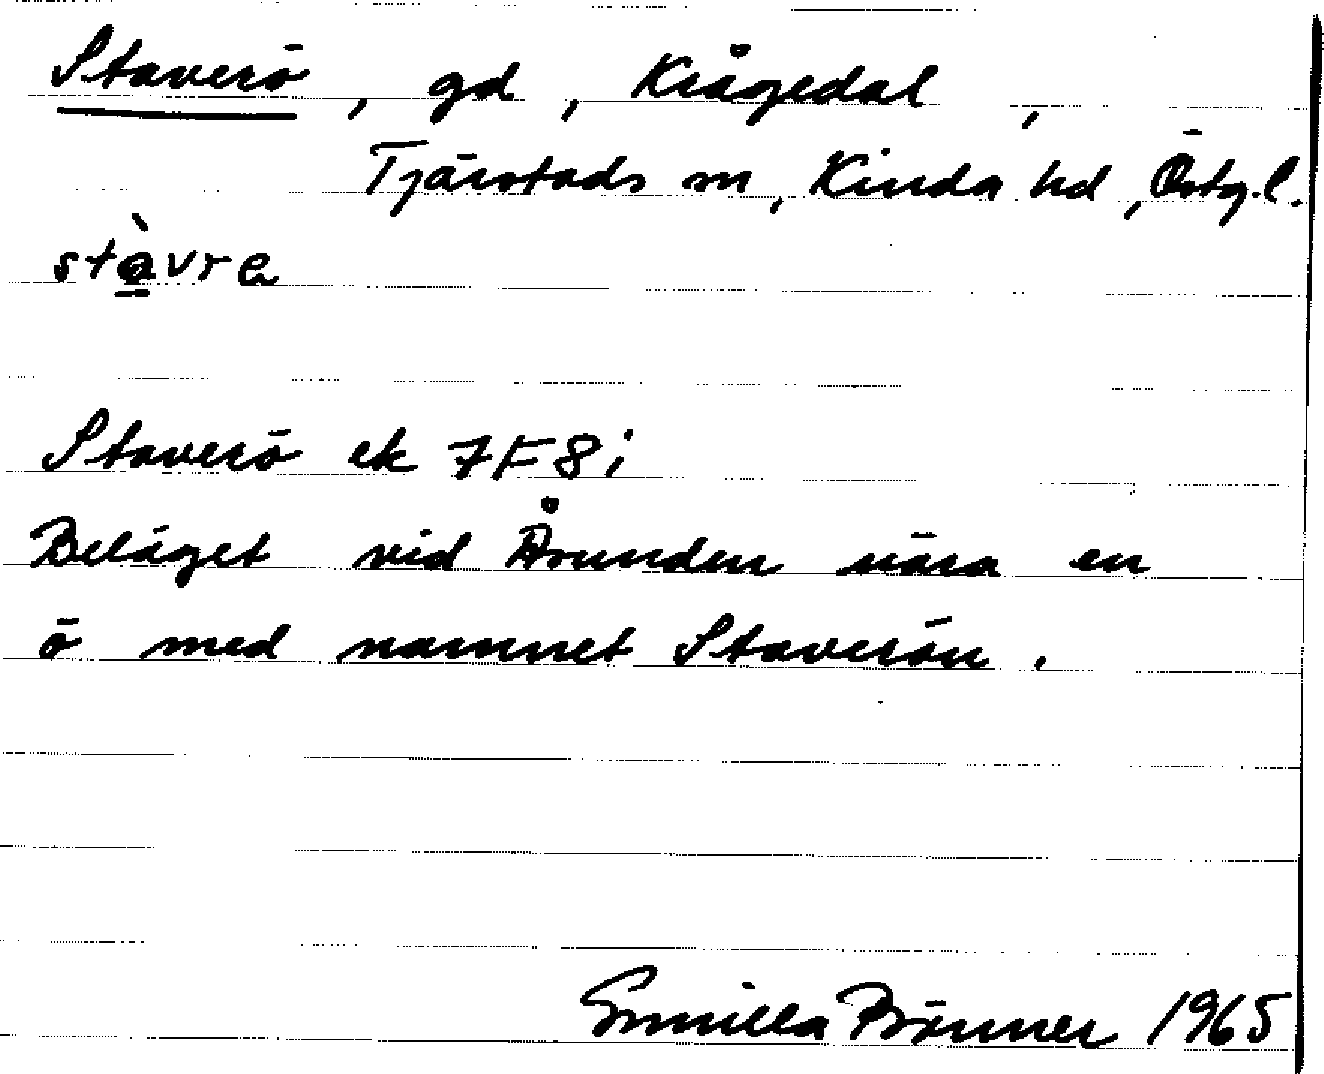 Staverö, gd, Krågedal,
Tjärstads sn, Kinda hd, Östg.l.
stàvre
Staverö ek 7F8i
Beläget vid Åsunden nära en
ö med namnet Staverön.
Gunilla Bränner 1965